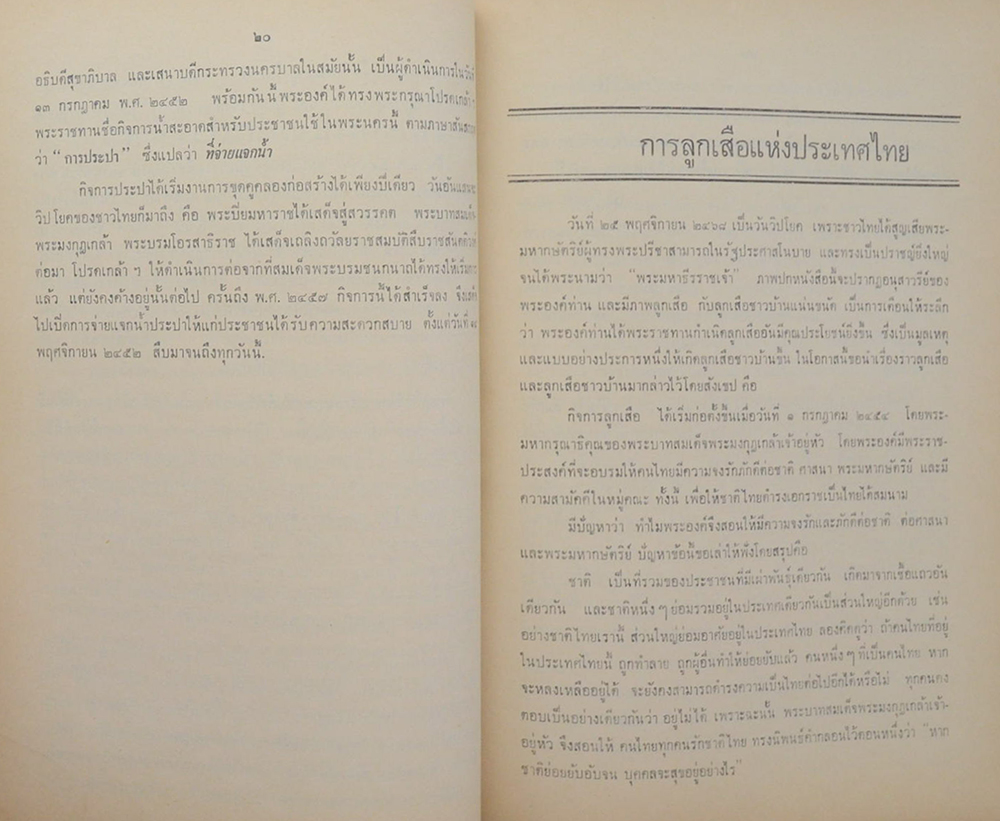 ๒๐
อธิบดีสุขาภิบาล และเสนาบดีกระทรวงนครบาลในสมัยนั้น เป็นผู้ดำเนินการในวันที่
๑๓ กรกฎาคม พ.ศ. ๒๔๕๒ พร้อมกันนี้พระองค์ได้ทรงพระกรุณาโปรดเกล้าฯ
พระราชทานชื่อกิจการน้ำสะอาดสำหรับประชาชนใช้ในพระนครนี้ ตามภาษาสันสกฤต
ว่า “การประปา” ซึ่งแปลว่า ที่จ่ายแจกน้ำ
กิจการประปาได้เริ่มงานการขุดคูคลองก่อสร้างได้เพียงปีเดียว วันอันแสน
วิปโยคของชาวไทยก็มาถึง คือ พระปิยมหาราชได้เสด็จสู่สวรรคต พระบาทสมเด็จ
พระมงกุฎเกล้า พระบรมโอรสาธิราช ได้เสด็จเถลิงถวัลยราชสมบัติสืบราชสันตติวงศ์
ต่อมา โปรดเกล้า ฯ ให้ดำเนินการต่อจากที่สมเด็จพระบรมชนกนาถได้ทรงให้เริ่มการ
แล้ว แต่ยังคงค้างอยู่นั้นต่อไป ครั้นถึง พ.ศ. ๒๔๕๗ กิจการนี้ได้สำเร็จลง จึงเสด็จ
ไปเปิดการจ่ายแจกน้ำประปาให้แก่ประชาชนได้รับความสะดวกสบาย ตั้งแต่วันที่
พฤศจิกายน ๒๔๕๒ สืบมาจนถึงทุกวันนี้.
การลูกเสือแห่งประเทศไทย
วันที่ ๒๕ พฤศจิกายน ๒๔๖๘ เป็นวันวิปโยค เพราะชาวไทยได้สูญเสียพระ-
มหากษัตริย์ผู้ทรงพระปรีชาสามารถในรัฐประศาสโนบาย และทรงเป็นปราชญ์ยิ่งใหญ่
จนได้พระนามว่า “พระมหาธีรราชเจ้า” ภาพปกหนังสือนี้จะปรากฏอนุสาวรีย์ของ
พระองค์ท่าน และมีภาพลูกเสือ กับลูกเสือชาวบ้านแน่นขนัด เป็นการเตือนให้ระลึก
ว่า พระองค์ท่านได้พระราชทานกำเนิดลูกเสืออันมีคุณประโยชน์ยิ่งขึ้น ซึ่งเป็นมูลเหตุ
และแบบอย่างประการหนึ่งให้เกิดลูกเสือชาวบ้านขึ้น ในโอกาสนี้ขอนำเรื่องราวลูกเสือ
และลูกเสือชาวบ้านมากล่าวไว้โดยสังเขป คือ
กิจการลูกเสือ ได้เริ่มก่อตั้งขึ้นเมื่อวันที่ ๑ กรกฎาคม ๒๔๕๔ โดยพระ-
มหากรุณาธิคุณของพระบาทสมเด็จพระมงกุฎเกล้าเจ้าอยู่หัว โดยพระองค์มีพระราช-
ประสงค์ที่จะอบรมให้คนไทยมีความจงรักภักดีต่อชาติ ศาสนา พระมหากษัตริย์ และมี
ความสามัคคีในหมู่คณะ ทั้งนี้ เพื่อให้ชาติไทยดำรงเอกราชเป็นไทยได้สมนาม
มีปัญหาว่า ทำไมพระองค์จึงสอนให้มีความจงรักและภักดีต่อชาติ ต่อศาสนา
และพระมหากษัตริย์ ปัญหาข้อนี้ขอเล่าให้ฟังโดยสรุปคือ
ชาติ เป็นที่รวมของประชาชนที่มีเผ่าพันธุ์เดียวกัน เกิดมาจากเชื้อแถวอัน
เดียวกัน และชาติหนึ่ง ๆ ย่อมรวมอยู่ในประเทศเดียวกันเป็นส่วนใหญ่อีกด้วย เช่น
อย่างชาติไทยเรานี้ ส่วนใหญ่ย่อมอาศัยอยู่ในประเทศไทย ลองคิดดูว่า ถ้าคนไทยที่อยู่
ในประเทศไทยนี้ ถูกทำลาย ถูกผู้อื่นทำให้ย่อยยับแล้ว คนหนึ่ง ๆ ที่เป็นคนไทย หาก
จะหลงเหลืออยู่ได้ จะยังคงสามารถดำรงความเป็นไทยต่อไปอีกได้หรือไม่ ทุกคนคง
ตอบเป็นอย่างเดียวกันว่า อยู่ไม่ได้ เพราะฉะนั้น พระบาทสมเด็จพระมงกุฎเกล้าเจ้า-
อยู่หัว จึงสอนให้ คนไทยทุกคนรักชาติไทย ทรงนิพนธ์คำกลอนไว้ตอนหนึ่งว่า “หาก
ชาติย่อยยับอับจน บุคคลจะสุขอยู่อย่างไร”